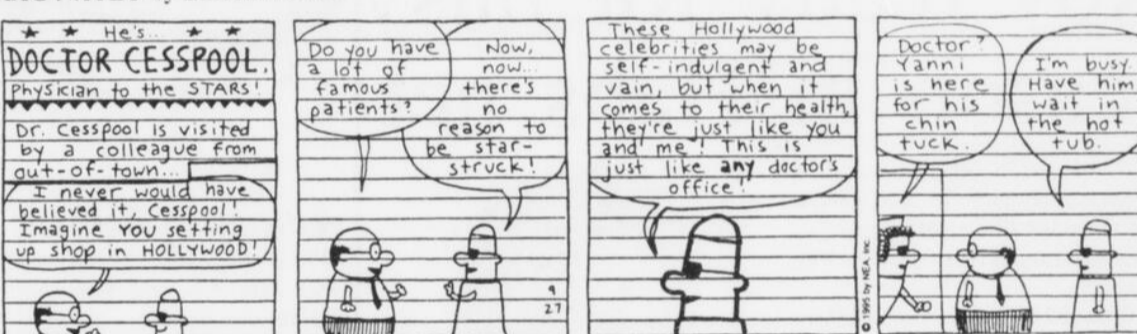 ★ ★ He's... ★ ★
DOCTOR CESSPOOL,
Physician to the STARS!
Dr. Cesspool is visited
by a colleague from
out-of-town...
I never would have
believed it, Cesspool!
Imagine YOU setting
up shop in HOLLYWOOD!
Do you have
a lot of
famous
patients?
Now,
now...
there's
no
reason to
be star-
struck!
9
27
These Hollywood
celebrities may be
self-indulgent and
vain, but when it
comes to their health,
they're just like you
and me! This is
just like any doctor's
office!
© 1995 by NEA, Inc.
Doctor?
Yanni
is here
for his
chin
tuck.
I'm busy.
Have him
wait in
the hot
tub.